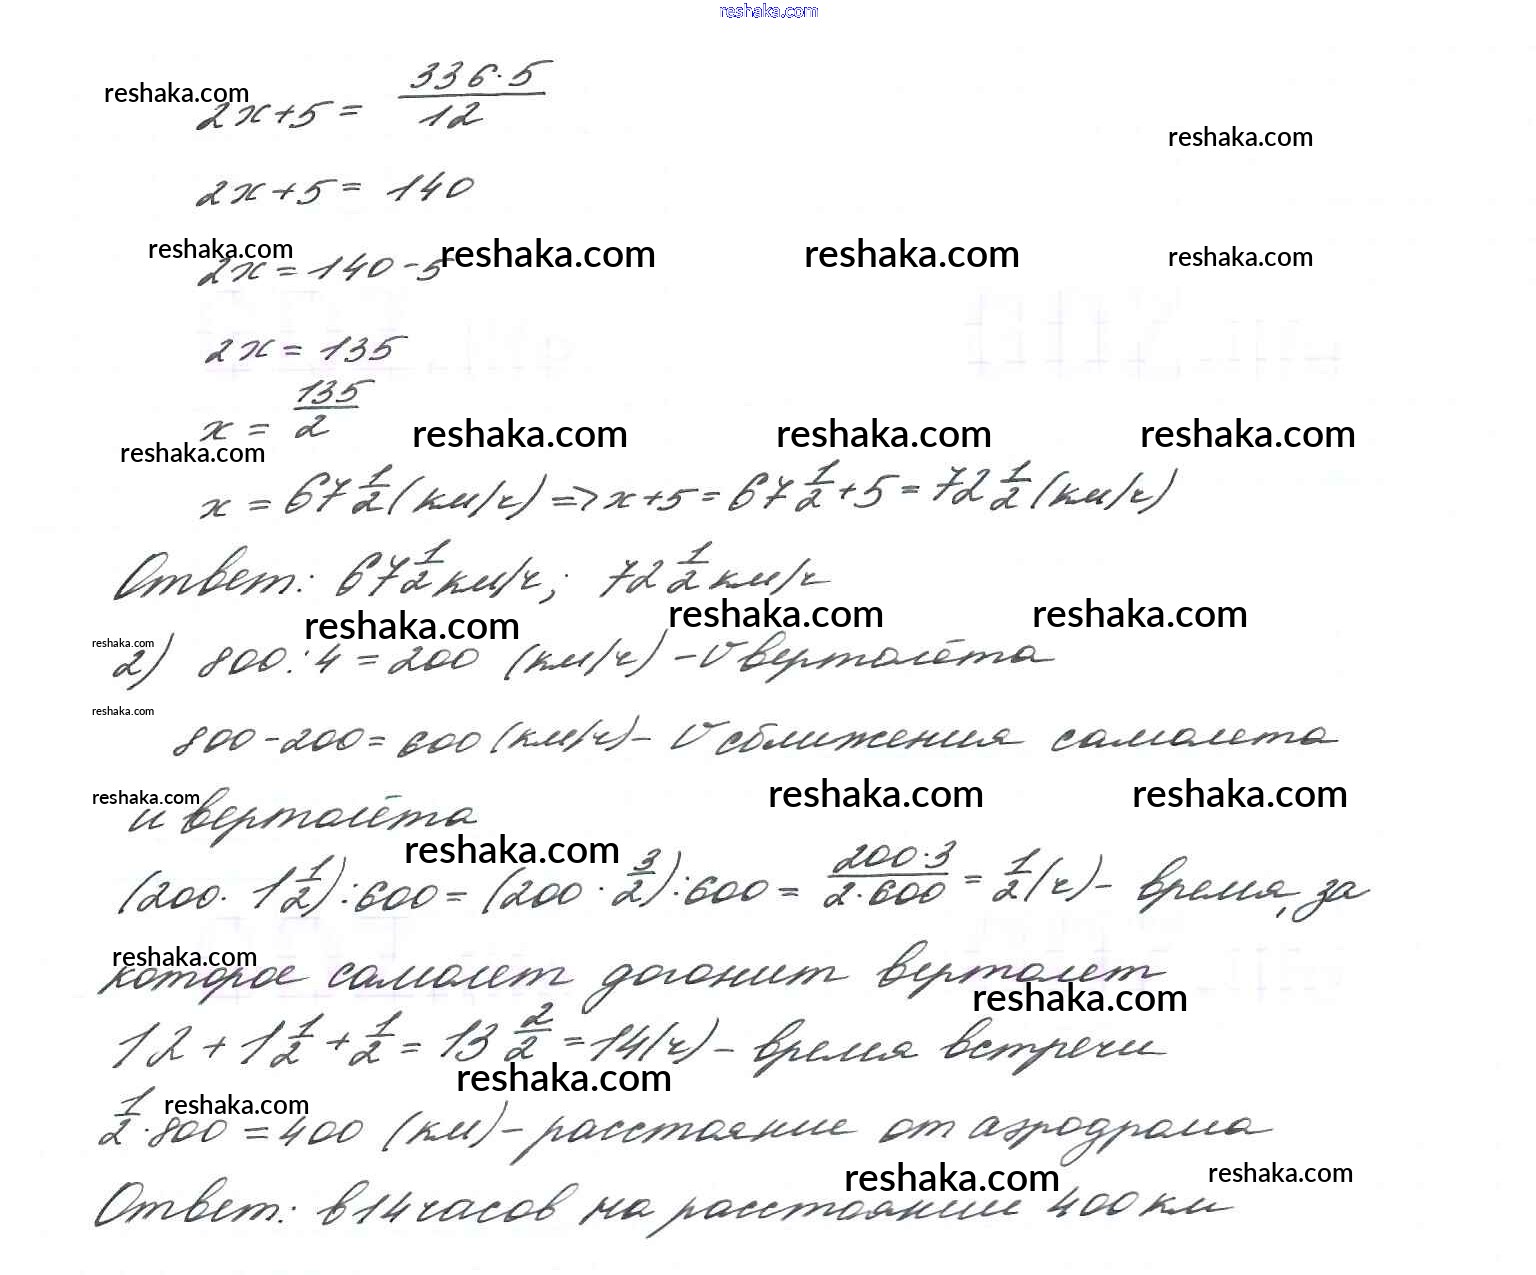 reshaka.com
2x+5 = 336·5/12
reshaka.com
reshaka.com
2x+5 = 140
reshaka.com reshaka.com reshaka.com reshaka.com
2x = 140-5
2x = 135
x = 135/2
reshaka.com reshaka.com reshaka.com
reshaka.com
x = 67 1/2 (км/ч) => x+5 = 67 1/2 + 5 = 72 1/2 (км/ч)
Ответ: 67 1/2 км/ч; 72 1/2 км/ч
reshaka.com reshaka.com reshaka.com
reshaka.com
2) 800:4=200 (км/ч) - V вертолёта
reshaka.com
800-200=600 (км/ч) - V сближения самолета
reshaka.com reshaka.com reshaka.com
и вертолёта
reshaka.com
(200· 1 1/2):600 = (200 · 3/2):600 = 200·3/2·600 = 1/2 (ч) - время, за
reshaka.com
которое самолет догонит вертолет
reshaka.com
12 + 1 1/2 + 1/2 = 13 2/2 = 14 (ч) - время встречи
reshaka.com
reshaka.com
1/2 · 800 = 400 (км) - расстояние от аэродрома
reshaka.com reshaka.com
Ответ: в 14 часов на расстоянии 400 км